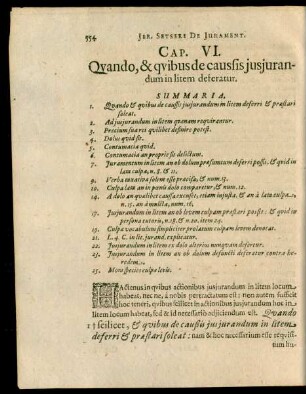 554 JER. SETSERI DE JURAMENT.
CAP. VI.
Qvando, & qvibus de caussis jusjuran-
dum in litem deferatur.
SUMMARIA.
1. Qvando & qvibus de caussis jusjurandum in litem deferri & præstari
soleat.
2. Ad jusjurandum in litem qvænam reqvirantur.
3. Precium sua rei qvilibet definire potest.
4. Dolus qvid sit.
5. Contumacia qvid.
6. Contumacia an proprie sit delictum.
7. Juramentum in litem an ob dolum præsumtum deferri possit, & qvid in
lata culpa, n. 8. & 11.
9. Verba taxativa solent esse præcisa, & num. 13.
10. Culpa lata an in panis dolo comparetur, & num. 12.
14. A dolo an qvælibet caussa excuset, etiam injusta, & an à lata culpa,
n. 15. an à multa, num. 16.
17. Jusjurandum in litem an ob levem culpam præstari possit: & qvid in
persona tutoris, n. 18. & n. 20. item, 24.
19. Culpa vocabulum simpliciter prolatum culpam levem denotat.
21. L. 4. C. in lit. jurand. explicatur.
22. Jusjurandum in litem ex dolo alterius nunqvam defertur.
23. Jusjurandum in litem an ob dolum defuncti deferatur contra he-
redem.
25. Mora species culpa levis.
HActenus in qvibus actionibus jusjurandum in litem locum
habeat, nec ne, à nobis pertractatum est: non autem sufficit
hoc teneri, qvibus scilicet in actionibus jusjurandum hoc in
litem locum habeat, sed & id necessario adjiciendum est. Qvando
1 † scilicet, & qvibus de caussis jusjurandum in litem
deferri & præstari soleat: nam & hoc necessarium esse reqvisi-
tum